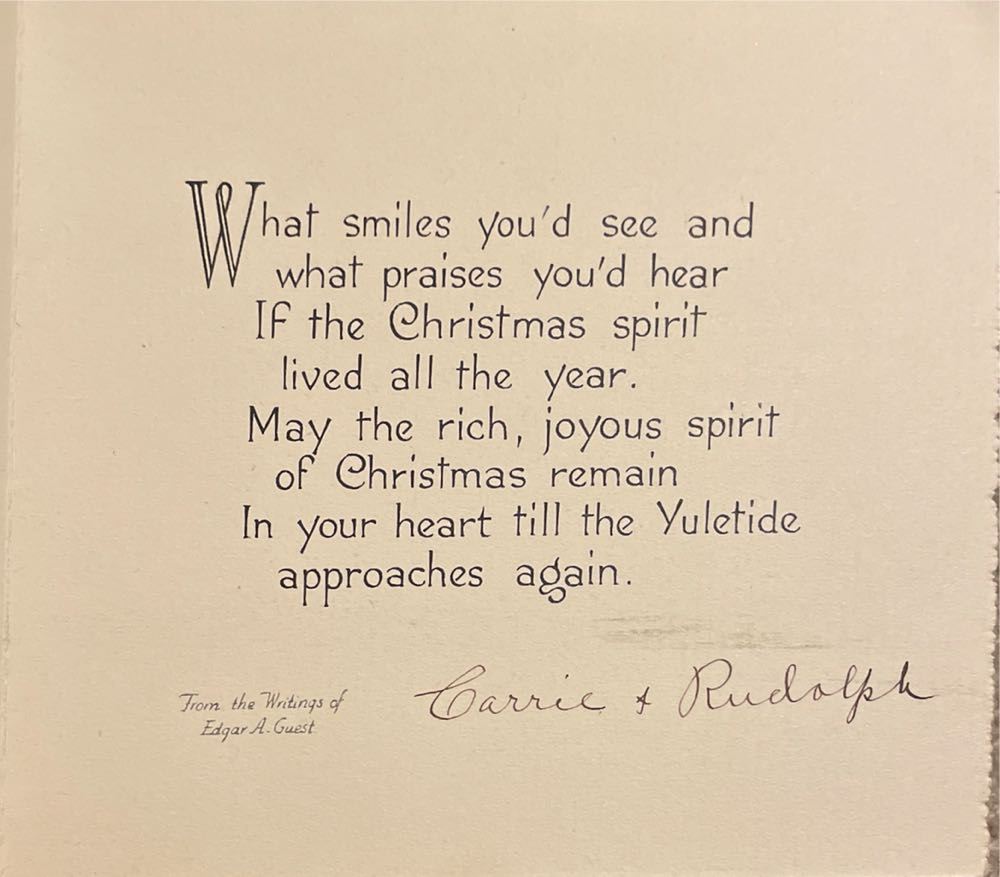 What smiles you'd see and
what praises you'd hear
If the Christmas spirit
lived all the year.
May the rich, joyous spirit
of Christmas remain
In your heart till the Yuletide
approaches again.
From the Writings of
Edgar A. Guest
Carrie & Rudolph